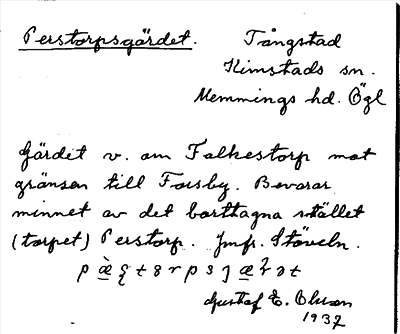 Perstorpsgärdet. Tångstad
Kimstads sn.
Memmings hd. Ögl
Gärdet v. om Falkestorp mot
gränsen till Forsby. Bevarar
minnet av det borttagna stället
(torpet) Perstorp. Jmfr. Stöveln.
Gustaf E. Olsson
1937